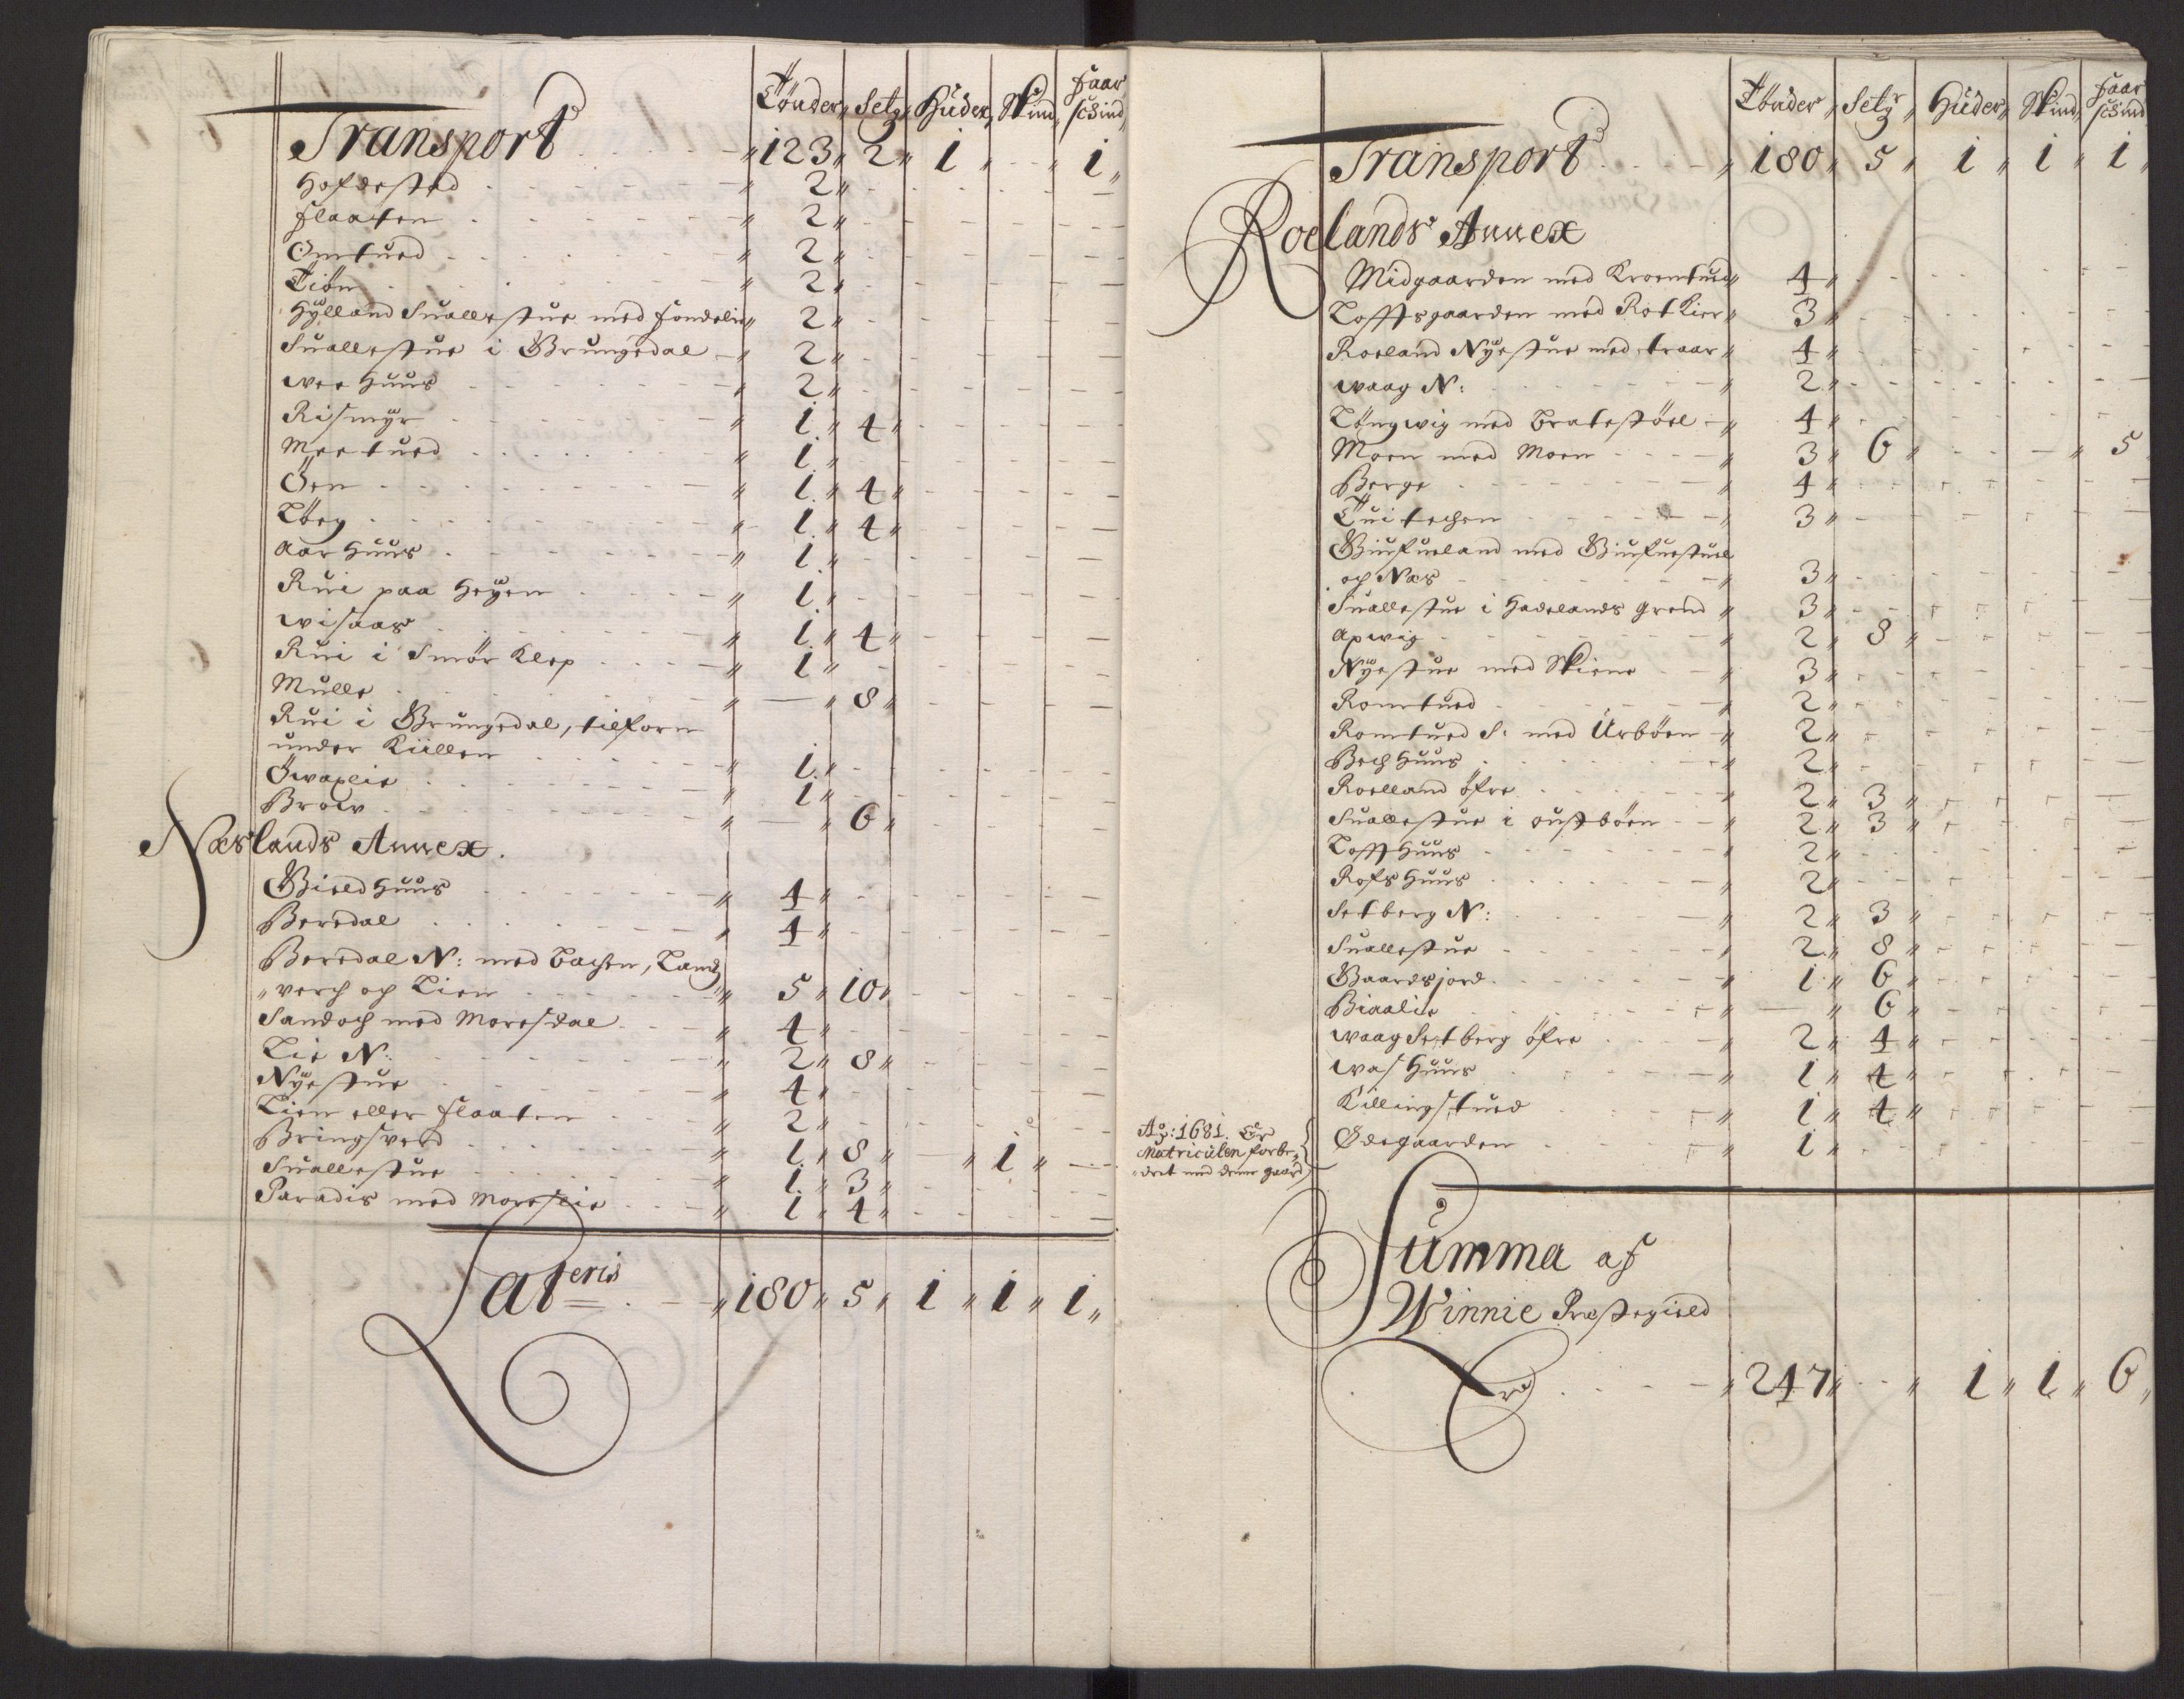 Tönder Setg Hüder Skind faar skind
Transport 123 2 1 - 1
Hofdestad 2
flaaten 2
Omtued 2
Tiön 2
Hylland Suallestue med fondelie 2
Suallestue i Grungedal 2
wee Huus 2
Rismyr 1 4
Mretued 1
Öen 1 4
Töeg 1 4
Aar Huus 1
Rui paa Heyen 1
wisaas 1 4
Rui i Smör Klep 1
Mulle - 8
Rui i Grungedal, tilforn
under Kullen 1
Öwaxlie 1
Brow - 6
Næslands Annex.
Gield Huus 4
Berdal 4
Berdal N: med Bachen, Land
verch och Lien 5 10
Sandoch med Moresdal 4
Lie N: 2 8
Nyestue 4
Lien eller flaaten 2
Bringsverd 1 8 - 1 -
Suallestue 1 3
Paradis med Moreslie 1 4
Lateris 180 5 1 1 1
Tönder Setgr Hüder Skind faar skind
Transport 180 5 1 1 1
Roelands Annex
Midgaarden med Kroentued 4
Lofftsgaarden med Rotkier 3
Roeland Nyestue med traar 4
waag N: 2
Löngwig med Bratestöel 4
Moen med Moen 3 6 - - 5
Berge 4
Tuitechen 3
Giufueland med Giufuestuel
och Næs 3
Suallestue i Hadelands grend 3
Apwig 2 8
Nyestue med Skiene 3
Romtued 2
Romtued S: med Urböen 2
Bech Huus 2
Roelland öfre 2 3
Suallestue i oustböen 2 3
Loffthuus 2
Rofs Huus 2
Setberg N: 2 3
Suallestue 2 8
Gaardsjord 1 6
Biaalie - 6
waag Setberg öfre 2 4
was Huus 1 4
Killingstued 1 4
Ao: 1681. Er
Matriculen forbe-
dret med denne gaard
Ödegaarden 1
Summa af
Winnie Præstegield
Er 247 - 1 1 6